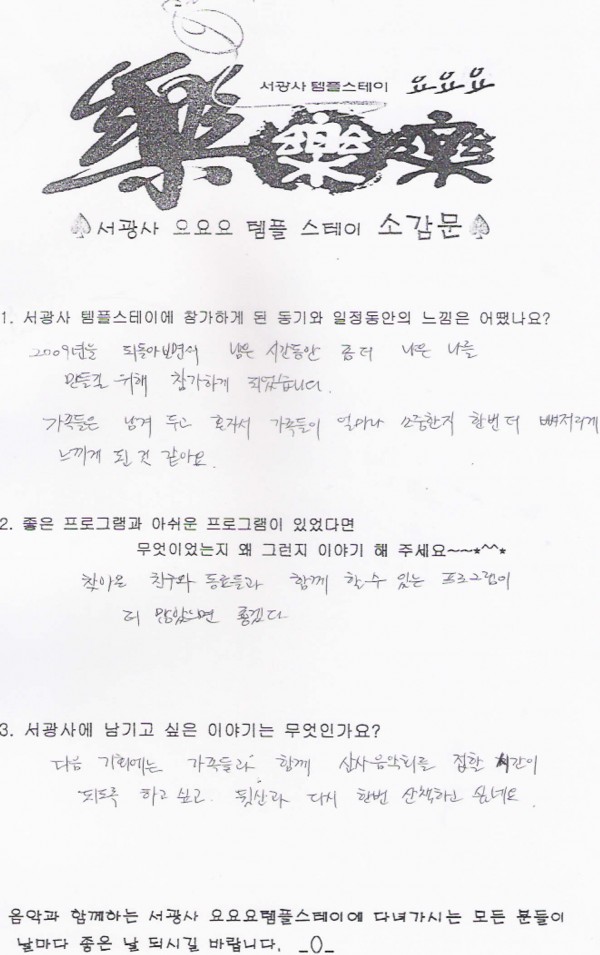 서광사 템플스테이 요요요
樂 樂 樂
서광사 요요요 템플 스테이 소감문
1. 서광사 템플스테이에 참가하게 된 동기와 일정동안의 느낌은 어땠나요?
2009년을 되돌아보면서 남은 시간동안 좀더 나은 나를
만들길 위해 참가하게 되었습니다.
가족들은 남겨 두고 혼자서 가족들이 얼마나 소중한지 한번더 뼈저리게
느끼게 된 것 같아요.
2. 좋은 프로그램과 아쉬운 프로그램이 있었다면
무엇이었는지 왜 그런지 이야기 해 주세요~~*^^*
찾아온 친구와 동료들과 함께 할수 있는 프로그램이
더 많았으면 좋겠다
3. 서광사에 남기고 싶은 이야기는 무엇인가요?
다음 기회에는 가족들과 함께 산사음악회를 접할 시간이
되도록 하고 싶고. 뒷산과 다시 한번 산책하고 싶네요.
음악과 함께하는 서광사 요요요템플스테이에 다녀가시는 모든 분들이
날마다 좋은 날 되시길 바랍니다. _()_